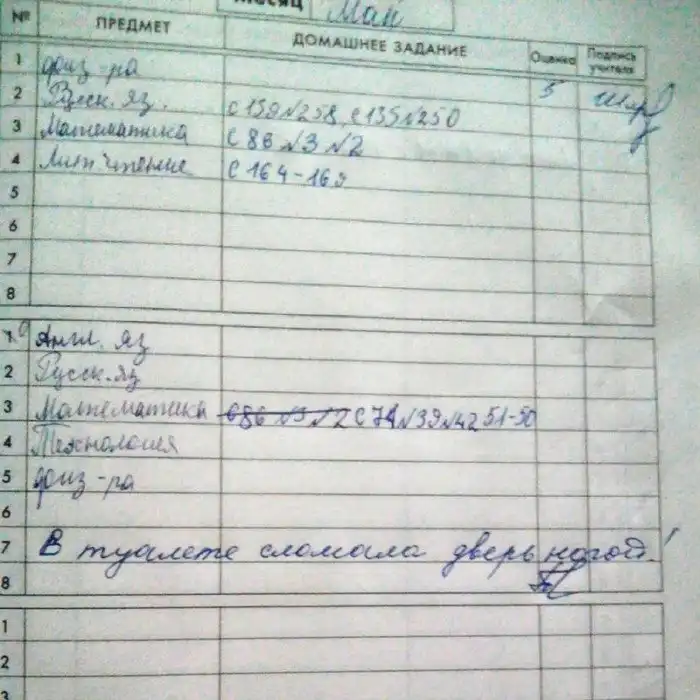 Месяц Май
№ ПРЕДМЕТ ДОМАШНЕЕ ЗАДАНИЕ Оценка Подпись учителя
1 физ-ра
2 Русск. яз. С 159 №258, с 135 №250 5
3 Математика С 86 №3 №2
4 Лит. чтение С 164-169
5
6
7
8
1 Англ. яз
2 Русск. яз
3 Математика С 86 №3 №2 С 74 №39 №42 51-50
4 Технология
5 физ-ра
6
7 В туалете сломала дверь ногой!
8
1
2
3